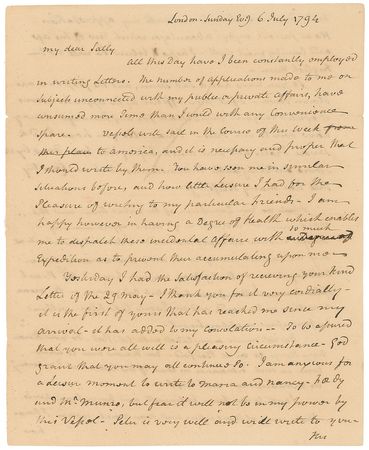 London - Sunday Eve.g 6 July 1794
my dear Sally
all this Day have I been constantly employed
in writing Letters. The number of applications made to me on
Subjects unconnected with my public or private affairs, have
consumed more Time than I could with any Convenience
spare. Vessels will sail in the Course of this week from
this place to america, and it is necessary and proper that
I should write by them. You have seen me in similar
Situations before, and how little Leisure I had for the
Pleasure of writing to my particular friends - I am
happy however in having a Degree of Health which enables
me to dispatch these incidental affairs with so much
Expedition as to prevent their accumulating upon me -
Yesterday I had the Satisfaction of receiving your kind
Letter of the 29 may - I thank you for it very cordially -
it is the first of yours that has reached me since my
arrival - it has added to my Consolation - To be assured
that you were all well is a pleasing circumstance - God
grant that you may all continue so. I am anxious for
a leisure moment to write to maria and nancy -
and Mr. Munro, but fear it will not be in my power by
this Vessel - Peter is very well and will write to you -